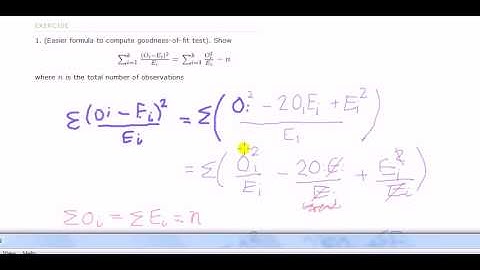 EXERCISE
1. (Easier formula to compute goodness-of-fit test). Show
∑ᵢ₌₁ᵏ (Oᵢ−Eᵢ)²/Eᵢ = ∑ᵢ₌₁ᵏ Oᵢ²/Eᵢ − n
where n is the total number of observations
Σ (Oi − Ei)²/Ei = Σ( (Oi² − 2OiEi + Ei²)/Ei )
= Σ( Oi²/Ei − 2OiEi/Ei + Ei²/Ei )
ΣOi = ΣEi = n
View Help